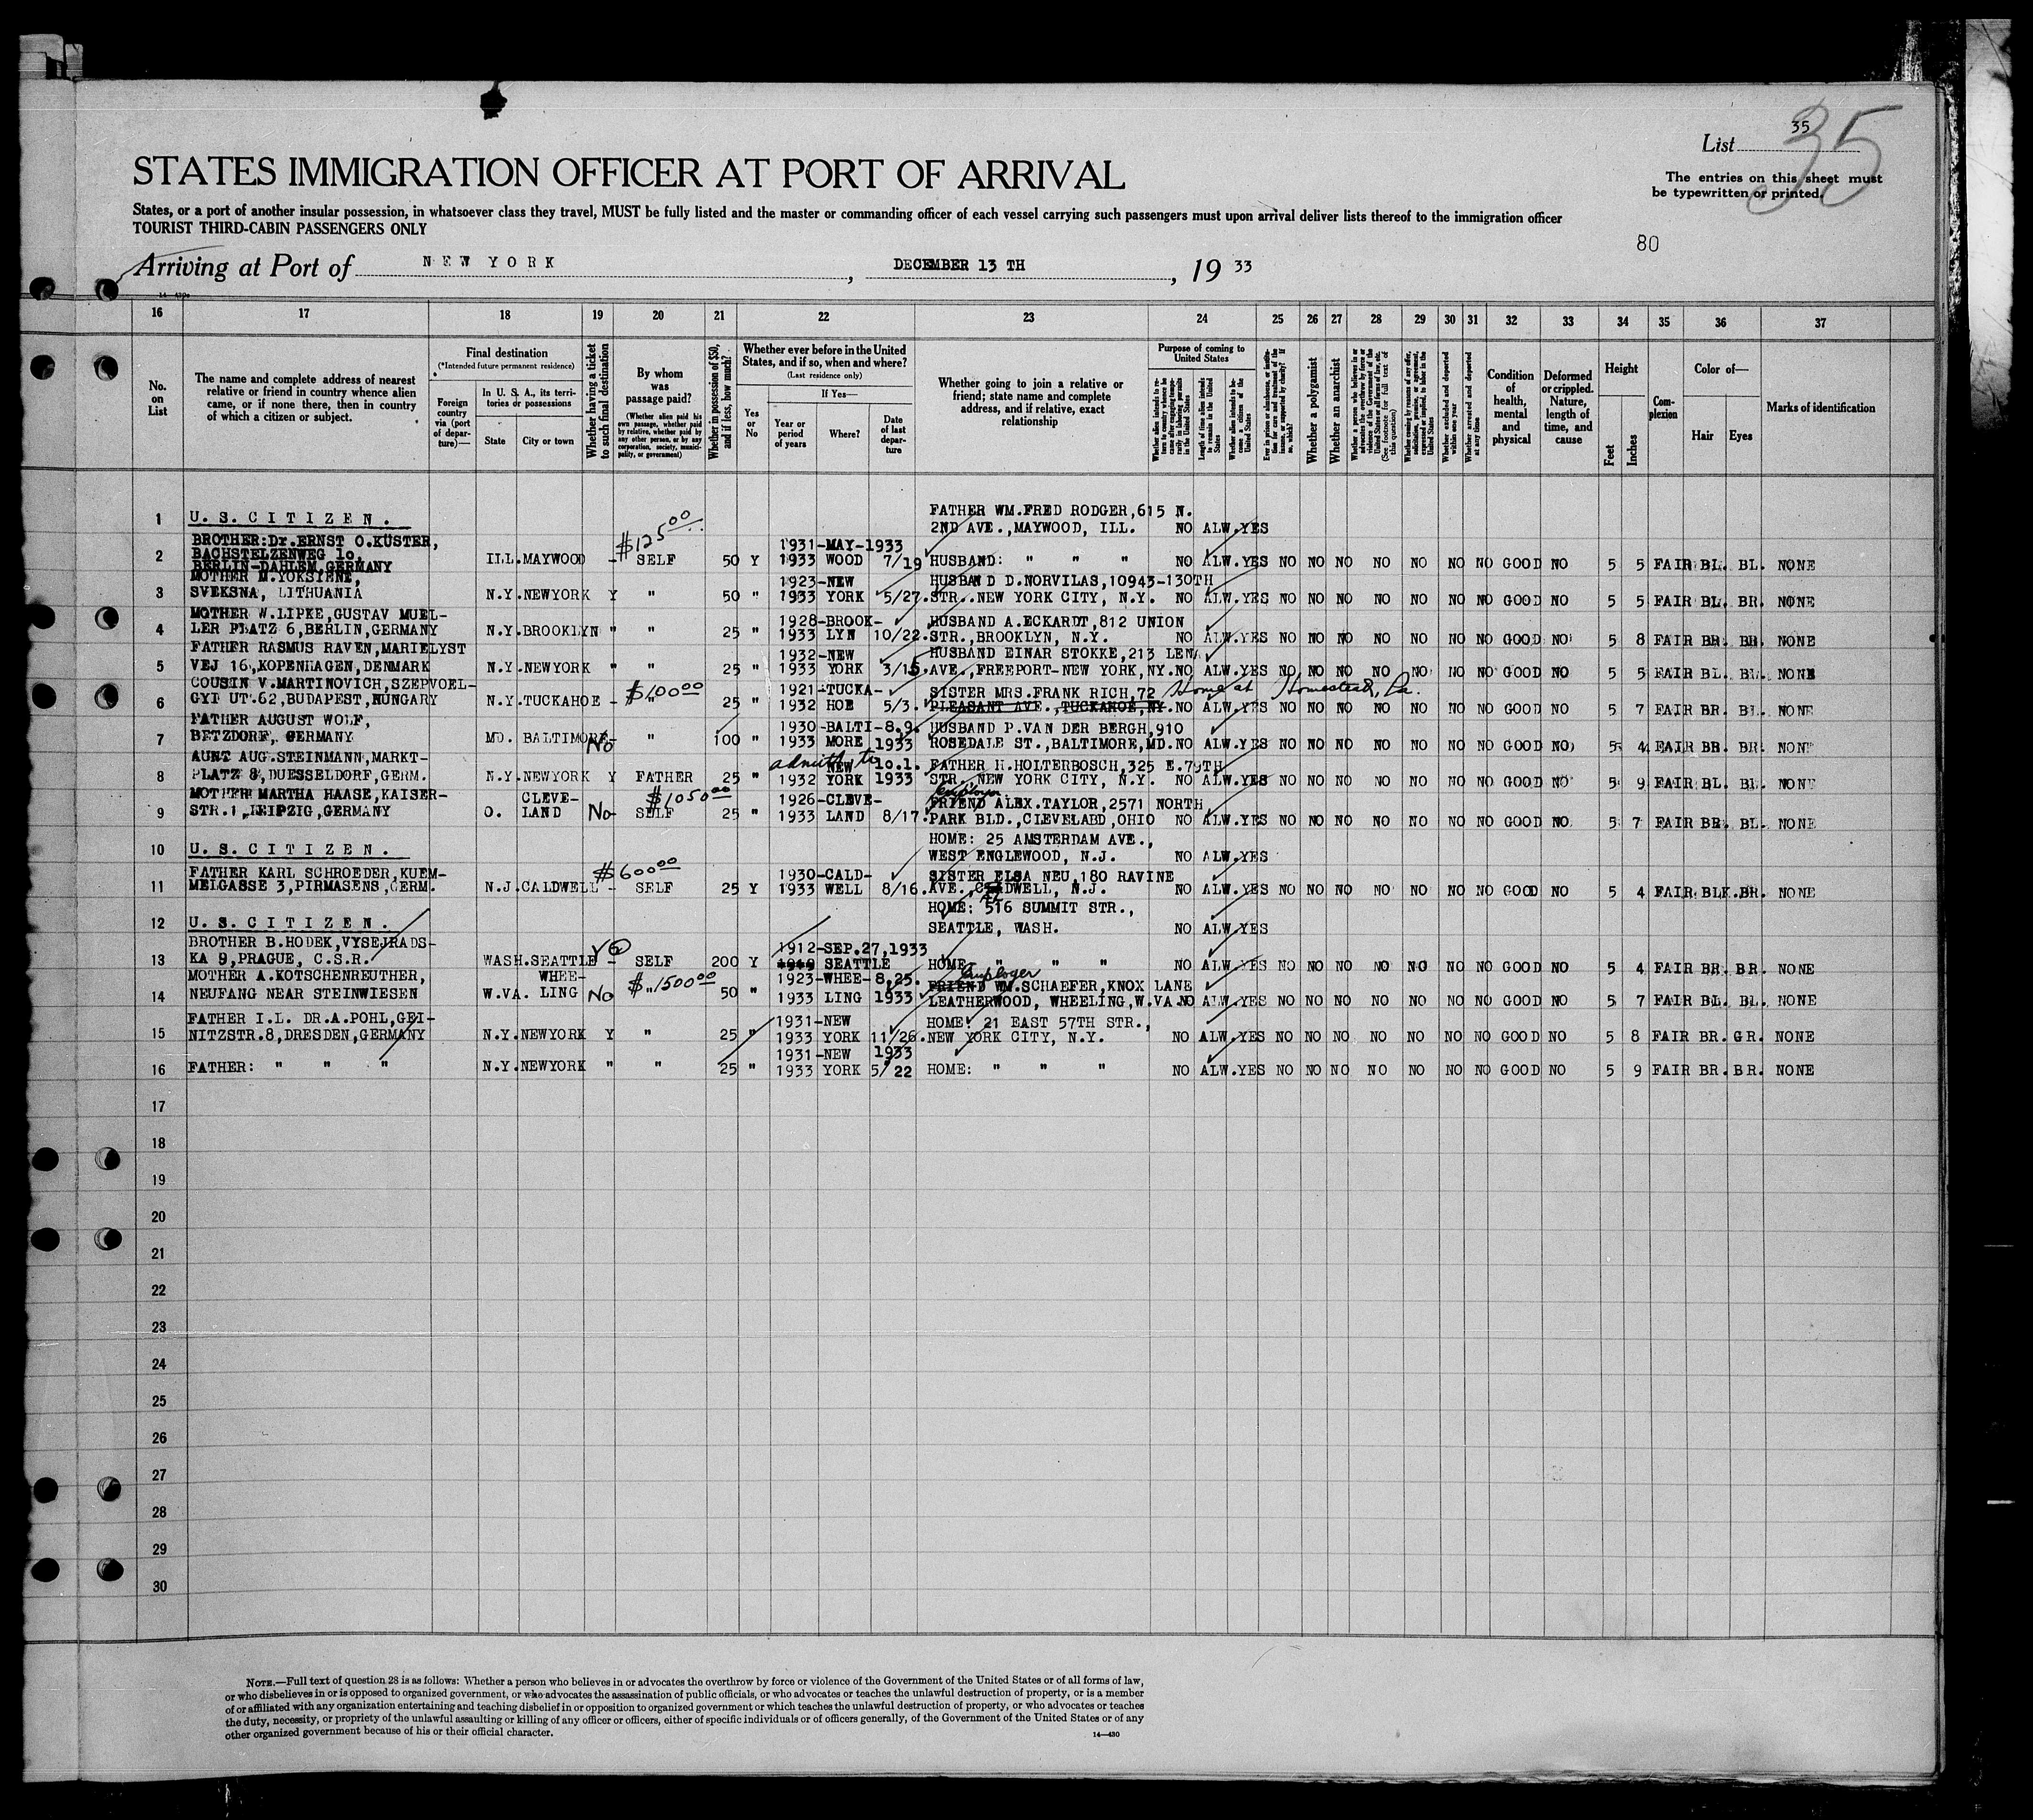 35
List 35
The entries on this sheet must
be typewritten or printed.
STATES IMMIGRATION OFFICER AT PORT OF ARRIVAL
States, or a port of another insular possession, in whatsoever class they travel, MUST be fully listed and the master or commanding officer of each vessel carrying such passengers must upon arrival deliver lists thereof to the immigration officer
TOURIST THIRD-CABIN PASSENGERS ONLY
80
Arriving at Port of NEW YORK, DECEMBER 13 TH, 19 33
16 17 18 19 20 21 22 23 24 25 26 27 28 29 30 31 32 33 34 35 36 37
No. on List
The name and complete address of nearest relative or friend in country whence alien came, or if none there, then in country of which a citizen or subject.
Final destination
(*Intended future permanent residence)
Foreign country via (port of departure)—
In U. S. A., its territories or possessions
State
City or town
Whether having a ticket to such final destination
By whom was passage paid?
(Whether alien paid his own passage, whether paid by relative, whether paid by any other person, or by any corporation, society, municipality, or government)
Whether in possession of $50, and if less, how much?
Whether ever before in the United States, and if so, when and where?
(Last residence only)
Yes or No
If Yes—
Year or period of years
Where?
Date of last departure
Whether going to join a relative or friend; state name and complete address, and if relative, exact relationship
Purpose of coming to United States
Length of time alien intends to remain in the United States
Whether alien intends to become a citizen of the United States
Whether a polygamist
Whether an anarchist
Whether excluded and deported within one year
Whether arrested and deported at any time
Condition of health, mental and physical
Deformed or crippled. Nature, length of time, and cause
Height
Feet
Inches
Complexion
Color of—
Hair
Eyes
Marks of identification
FATHER WM.FRED RODGER,615 N.
1 U.S.CITIZEN. 2ND AVE.,MAYWOOD, ILL. NO ALW.YES
BROTHER:Dr.ERNST O.KÜSTER, $125 00
BACHSTELZENWEG 10, 1931-MAY-1933
2 BERLIN-DAHLEM,GERMANY ILL.MAYWOOD - SELF 50 Y 1933 WOOD 7/19 HUSBAND: " " " NO ALW.YES NO NO NO NO NO NO NO GOOD NO 5 5 FAIR BL. BL. NONE
MOTHER M.YOKSIENE, 1923-NEW HUSBAND D.NORVILAS,10943-130TH
3 SVEKSNA, LITHUANIA N.Y.NEWYORK Y " 50 " 1933 YORK 5/27. STR..NEW YORK CITY, N.Y. NO ALW.YES NO NO NO NO NO NO NO GOOD NO 5 5 FAIR BL. BR. NONE
MOTHER W.LIPKE,GUSTAV MUEL- 1928-BROOK- HUSBAND A.ECKARDT,812 UNION
4 LER PLATZ 6,BERLIN,GERMANY N.Y.BROOKLYN " " 25 " 1933 LYN 10/22. STR.,BROOKLYN, N.Y. NO ALW.YES NO NO NO NO NO NO NO GOOD NO 5 8 FAIR BR. BR. NONE
FATHER RASMUS RAVEN,MARIELYST 1932-NEW HUSBAND EINAR STOKKE,213 LENA
5 VEJ 16,KOPENHAGEN,DENMARK N.Y.NEWYORK " " 25 " 1933 YORK 3/15. AVE.,FREEPORT-NEW YORK,NY.NO ALW.YES NO NO NO NO NO NO NO GOOD NO 5 5 FAIR BL. BL. NONE
COUSIN V.MARTINOVICH,SZEPVOEL- $100 00 1921-TUCKA- SISTER MRS.FRANK RICH,72 Home at Homestead, Pa.
6 GYI UT.62,BUDAPEST,HUNGARY N.Y.TUCKAHOE - " 25 " 1932 HOE 5/3. PLEASANT AVE.,TUCKAHOE,NY.NO ALW.YES NO NO NO NO NO NO NO GOOD NO 5 7 FAIR BR. BL. NONE
FATHER AUGUST WOLF, 1930-BALTI-8,9. HUSBAND P.VAN DER BERGH,910
7 BETZDORF, GERMANY MD. BALTIMORE- No " 100 " 1933 MORE 1933 ROSEDALE ST.,BALTIMORE,MD.NO ALW.YES NO NO NO NO NO NO NO GOOD NO 5 4 FAIR BR. BR. NONE
AUNT AUG.STEINMANN,MARKT- NEW 10.1. FATHER H.HOLTERBOSCH,325 E.79TH
8 PLATZ 8,DUESSELDORF,GERM. N.Y.NEWYORK Y FATHER 25 " 1932 YORK 1933 STR. NEW YORK CITY, N.Y. NO ALW.YES NO NO NO NO NO NO NO GOOD NO 5 9 FAIR BL. BL. NONE
MOTHER MARTHA HAASE,KAISER- CLEVE- $1050 00 1926-CLEVE- employer FRIEND ALEX.TAYLOR,2571 NORTH
9 STR.1,LEIPZIG,GERMANY O. LAND No- SELF 25 " 1933 LAND 8/17. PARK BLD.,CLEVELABD,OHIO NO ALW.YES NO NO NO NO NO NO NO GOOD NO 5 7 FAIR BR. BL. NONE
HOME: 25 AMSTERDAM AVE.,
10 U.S.CITIZEN. WEST ENGLEWOOD, N.J. NO ALW.YES
FATHER KARL SCHROEDER,KUEM- $600 00 1930-CALD- SISTER ELSA NEU,180 RAVINE
11 MELGASSE 3,PIRMASENS,GERM. N.J.CALDWELL - SELF 25 Y 1933 WELL 8/16. AVE.,CALDWELL, N.J. NO ALW.YES NO NO NO NO NO NO NO GOOD NO 5 4 FAIR BLK.BR. NONE
HOME: 516 SUMMIT STR.,
12 U.S.CITIZEN. SEATTLE, WASH. NO ALW.YES
BROTHER B.HODEK,VYSEJRADS- 1912-SEP.27,1933
13 KA 9,PRAGUE, C.S.R. WASH.SEATTLE - SELF 200 Y SEATTLE HOME: " " " NO ALW.YES NO NO NO NO NO NO NO GOOD NO 5 4 FAIR BR. BR. NONE
MOTHER A.KOTSCHENREUTHER, WHEE- $1500 00 1923-WHEE-8,25. employer FRIEND WM.SCHAEFER,KNOX LANE
14 NEUFANG NEAR STEINWIESEN W.VA. LING No " 50 " 1933 LING 1933 LEATHERWOOD, WHEELING,W.VA.NO ALW.YES NO NO NO NO NO NO NO GOOD NO 5 7 FAIR BL. BL. NONE
FATHER I.L. DR.A.POHL,GEI- 1931-NEW HOME: 21 EAST 57TH STR.,
15 NITZSTR.8,DRESDEN,GERMANY N.Y.NEWYORK Y " 25 " 1933 YORK 11/26. NEW YORK CITY, N.Y. NO ALW.YES NO NO NO NO NO NO NO GOOD NO 5 8 FAIR BR. GR. NONE
1931-NEW 1933
16 FATHER: " " " N.Y.NEWYORK " " 25 " 1933 YORK 5/22 HOME: " " " NO ALW.YES NO NO NO NO NO NO NO GOOD NO 5 9 FAIR BR. BR. NONE
17
18
19
20
21
22
23
24
25
26
27
28
29
30
NOTE.—Full text of question 28 is as follows: Whether a person who believes in or advocates the overthrow by force or violence of the Government of the United States or of all forms of law,
or who disbelieves in or is opposed to organized government, or who advocates the assassination of public officials, or who advocates or teaches the unlawful destruction of property, or is a member
of or affiliated with any organization entertaining and teaching disbelief in or opposition to organized government or which teaches the unlawful destruction of property, or who advocates or teaches
the duty, necessity, or propriety of the unlawful assaulting or killing of any officer or officers, either of specific individuals or of officers generally, of the Government of the United States or of any
other organized government because of his or their official character.
14—430